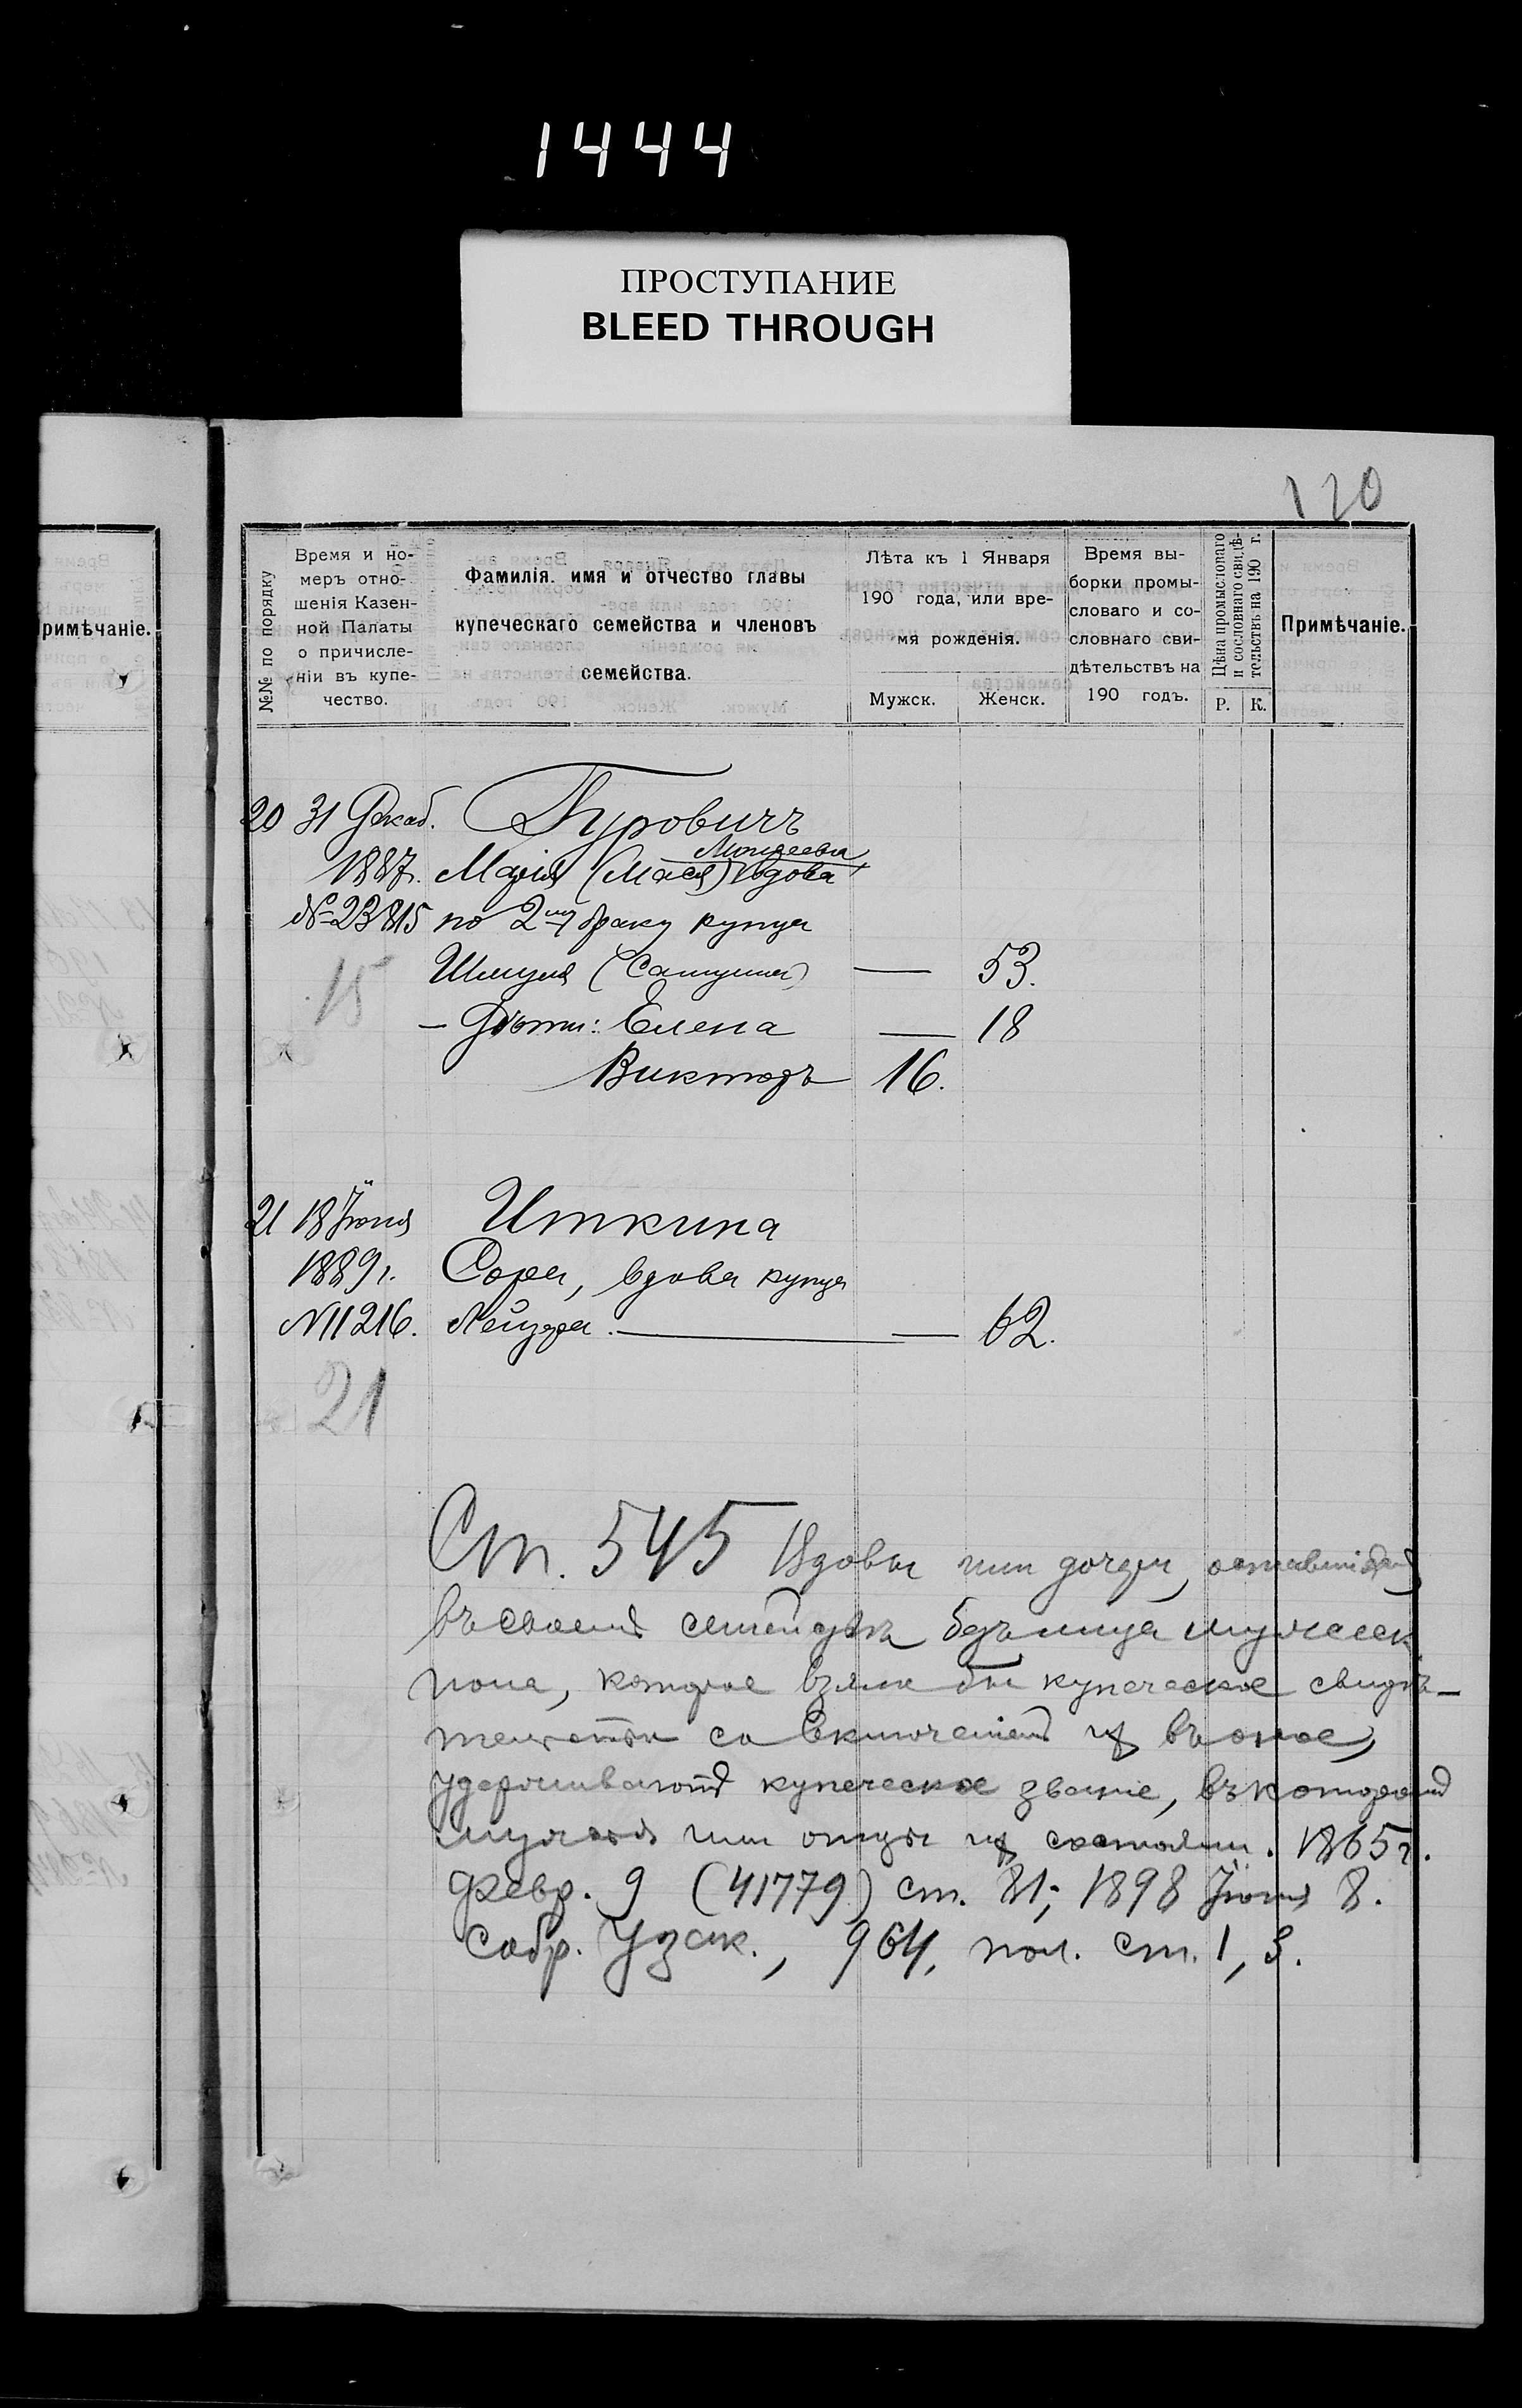 1444
ПРОСТУПАНИЕ
BLEED THROUGH
120
римѣчаніе.
№№ по порядку
Время и но-
меръ отно-
шенія Казен-
ной Палаты
о причисле-
ніи въ купе-
чество.
Фамилія. имя и отчество главы
купеческаго семейства и членовъ
семейства.
Лѣта къ 1 Января
190 года, или вре-
мя рожденія.
Мужск. Женск.
Время вы-
борки промы-
словаго и со-
словнаго сви-
дѣтельствъ на
190 годъ.
Цѣна промысловаго
и сословнаго свидѣ-
тельствъ на 190 г.
Р. К.
Примѣчаніе.
20 31 Декаб. Гуровичъ
Моисеевна
1887г. Марія (Мася) вдова
№ 23815 по 2му браку купца
Шмуля (Самуила) — 53.
15
— Дѣти: Елена — 18
Викторъ 16.
21 18 Іюня Иткина
1889г. Сора, вдова купца
N 11216. Лейзера. — 62.
21
Ст. 545 Вдовы или дочери, оставшіяся
въ своемъ семействѣ безъ лица мужеск.
пола, которое взяло бы купеческое свидѣ-
тельство со включеніемъ ихъ въ оное,
удерживаютъ купеческое званіе, въ которомъ
мужья или отцы ихъ состояли. 1865г.
Февр. 9 (41779) ст. 81; 1898 Іюня 8.
собр. Узак., 964, пол. ст. 1, 3.